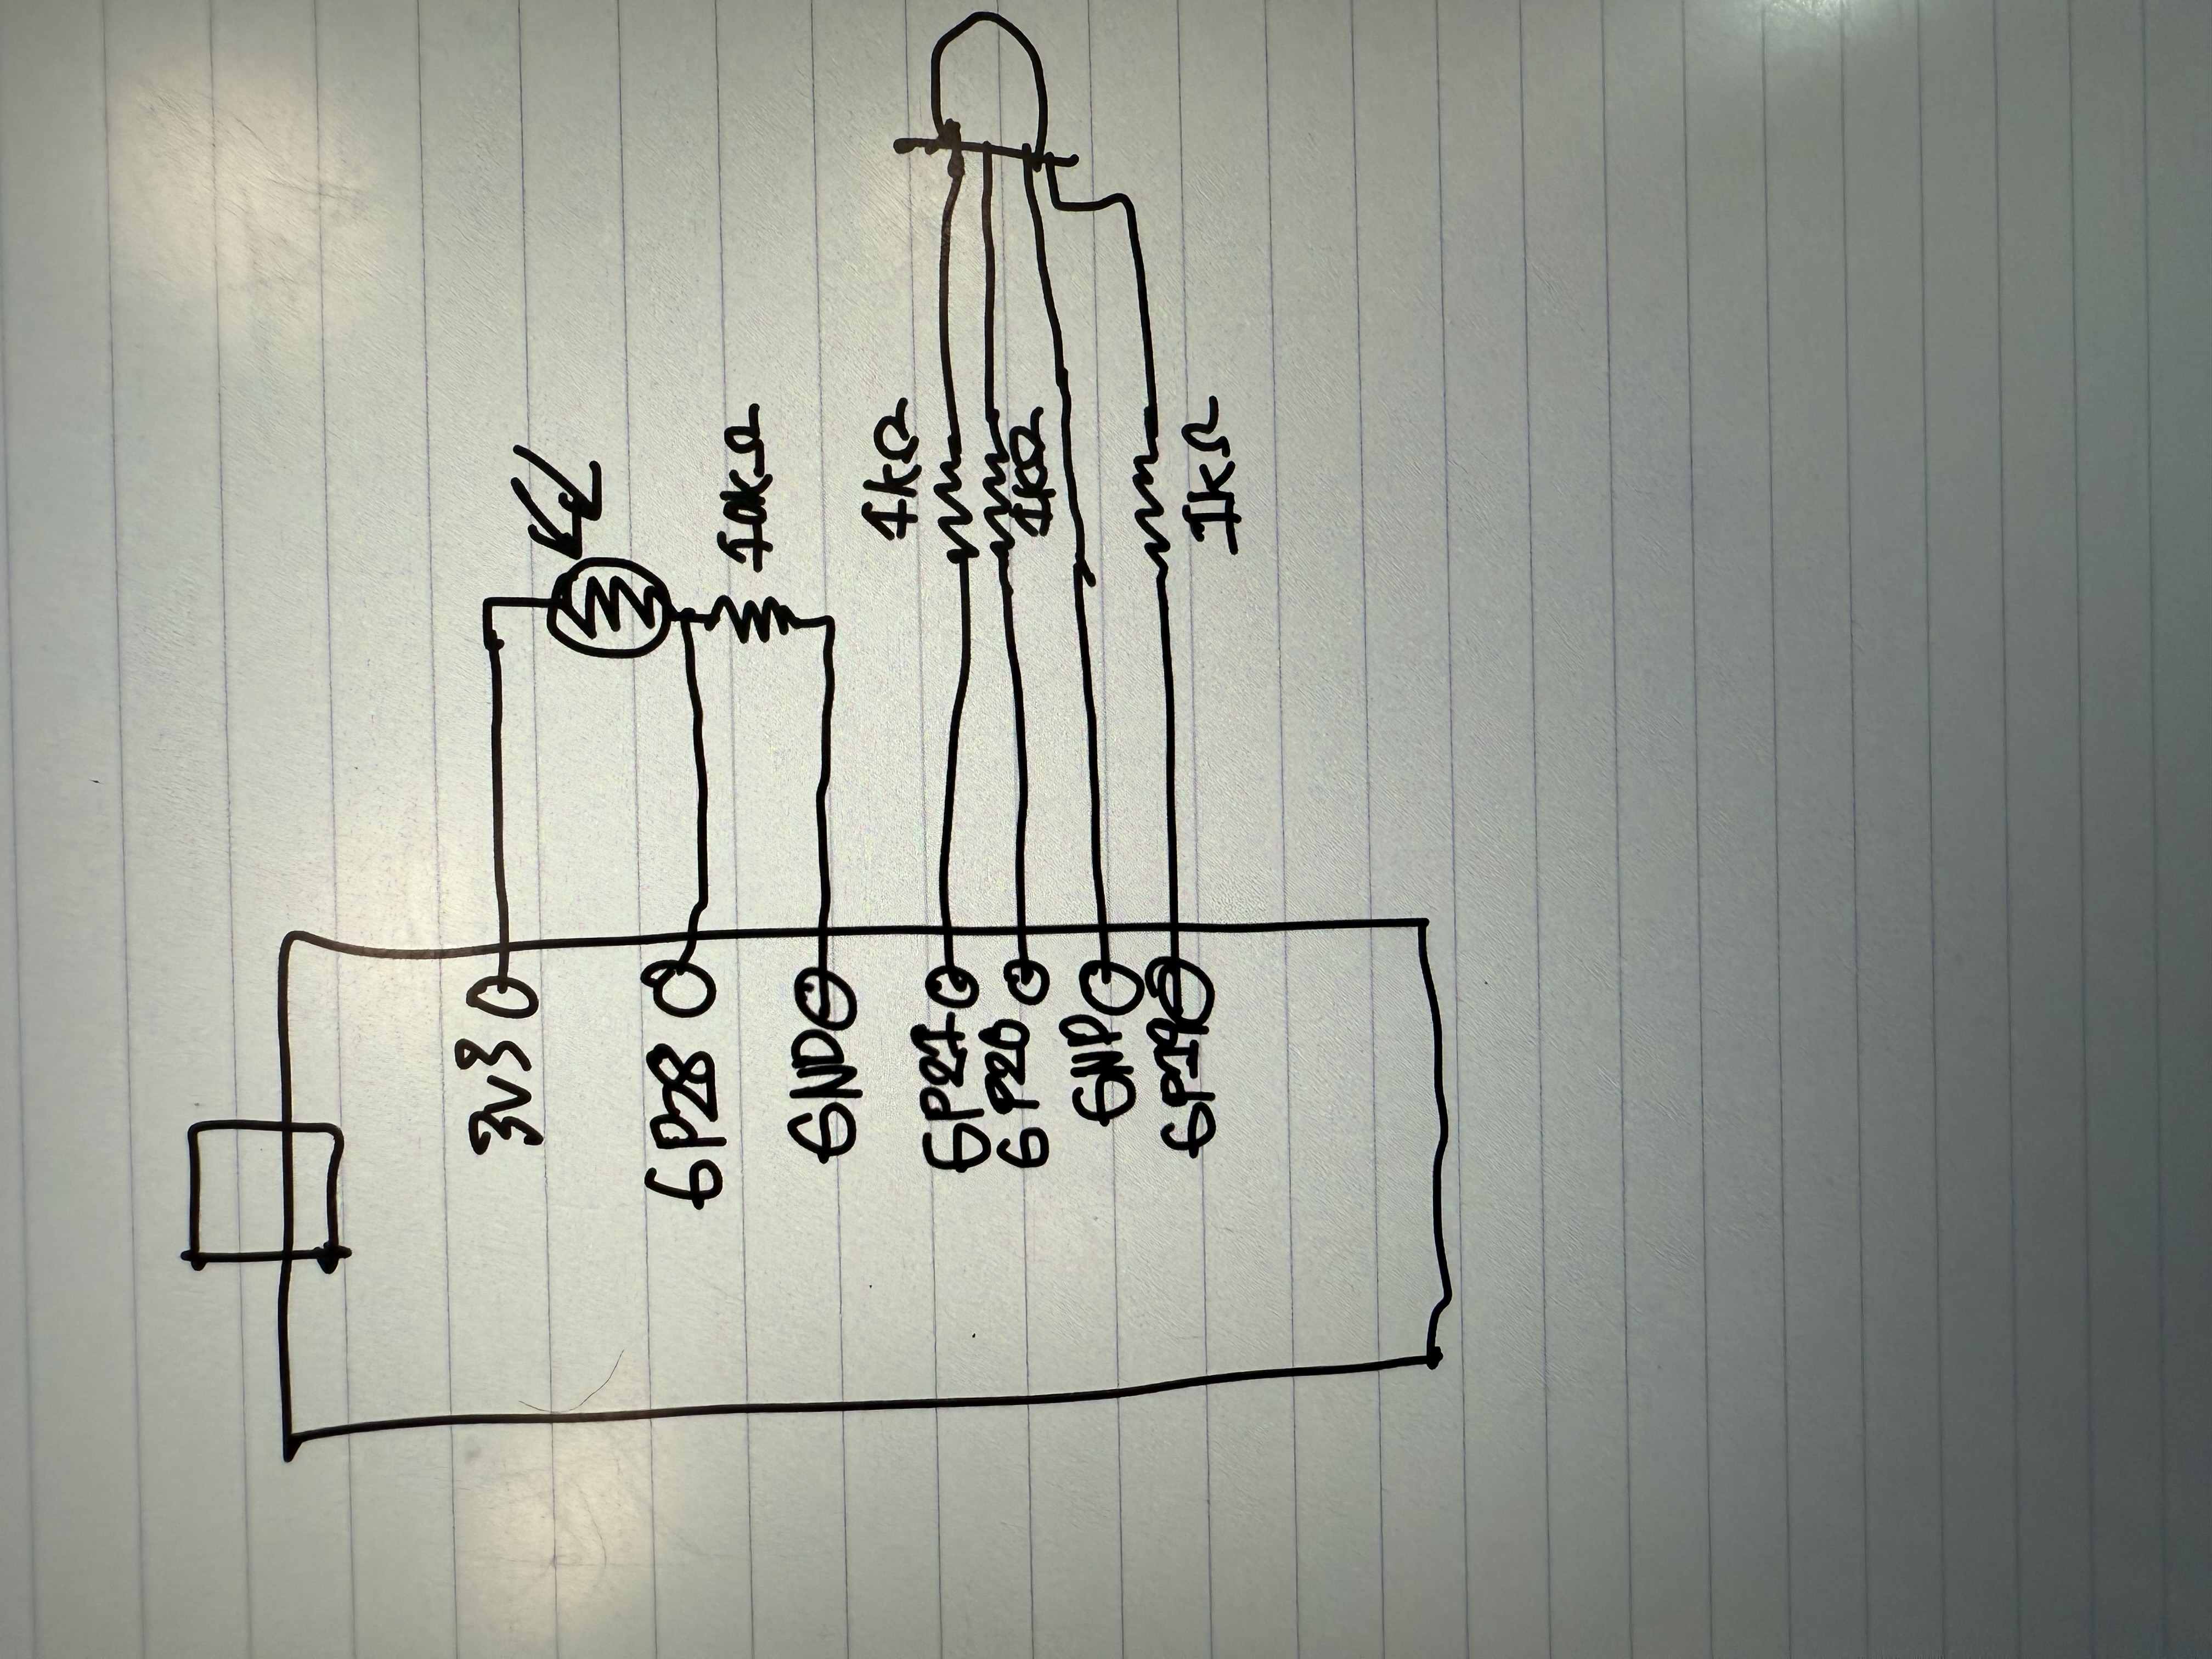 3V3
GP28
10kΩ
GND
1kΩ
GP21
GP20
1kΩ
GND
GP19
1kΩ